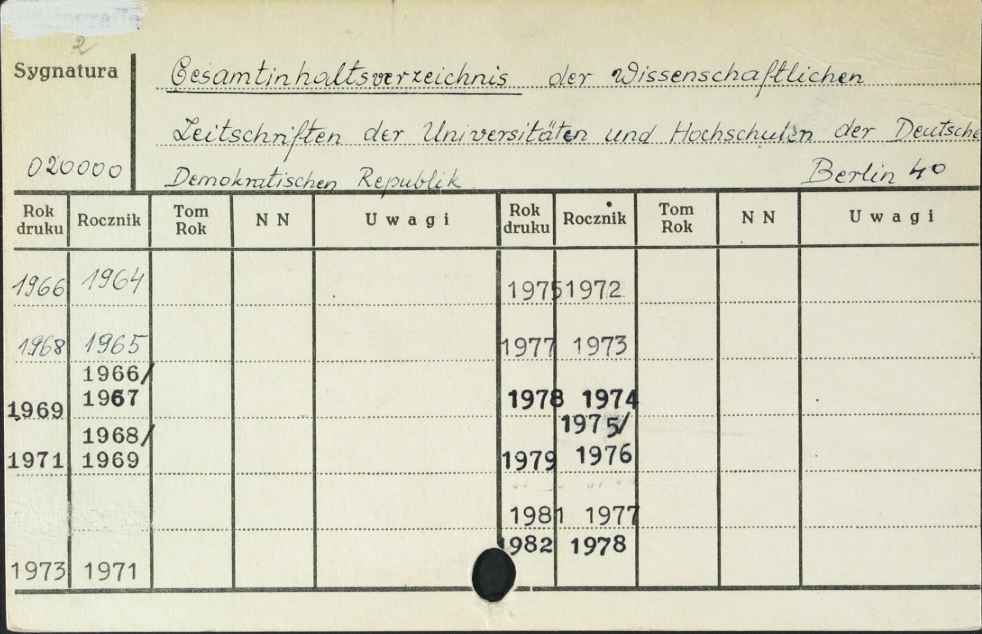 2
Sygnatura
Gesamtinhaltsverzeichnis der Wissenschaftlichen
Zeitschriften der Universitäten und Hochschulen der Deutsche
020000
Demokratischen Republik Berlin 40
Rok druku Rocznik Tom Rok N N Uwagi Rok druku Rocznik Tom Rok N N Uwagi
1966 1964 1975 1972
1968 1965 1977 1973
1969 1966/1967 1978 1974
1971 1968/1969 1979 1975/1976
1981 1977
1982 1978
1973 1971